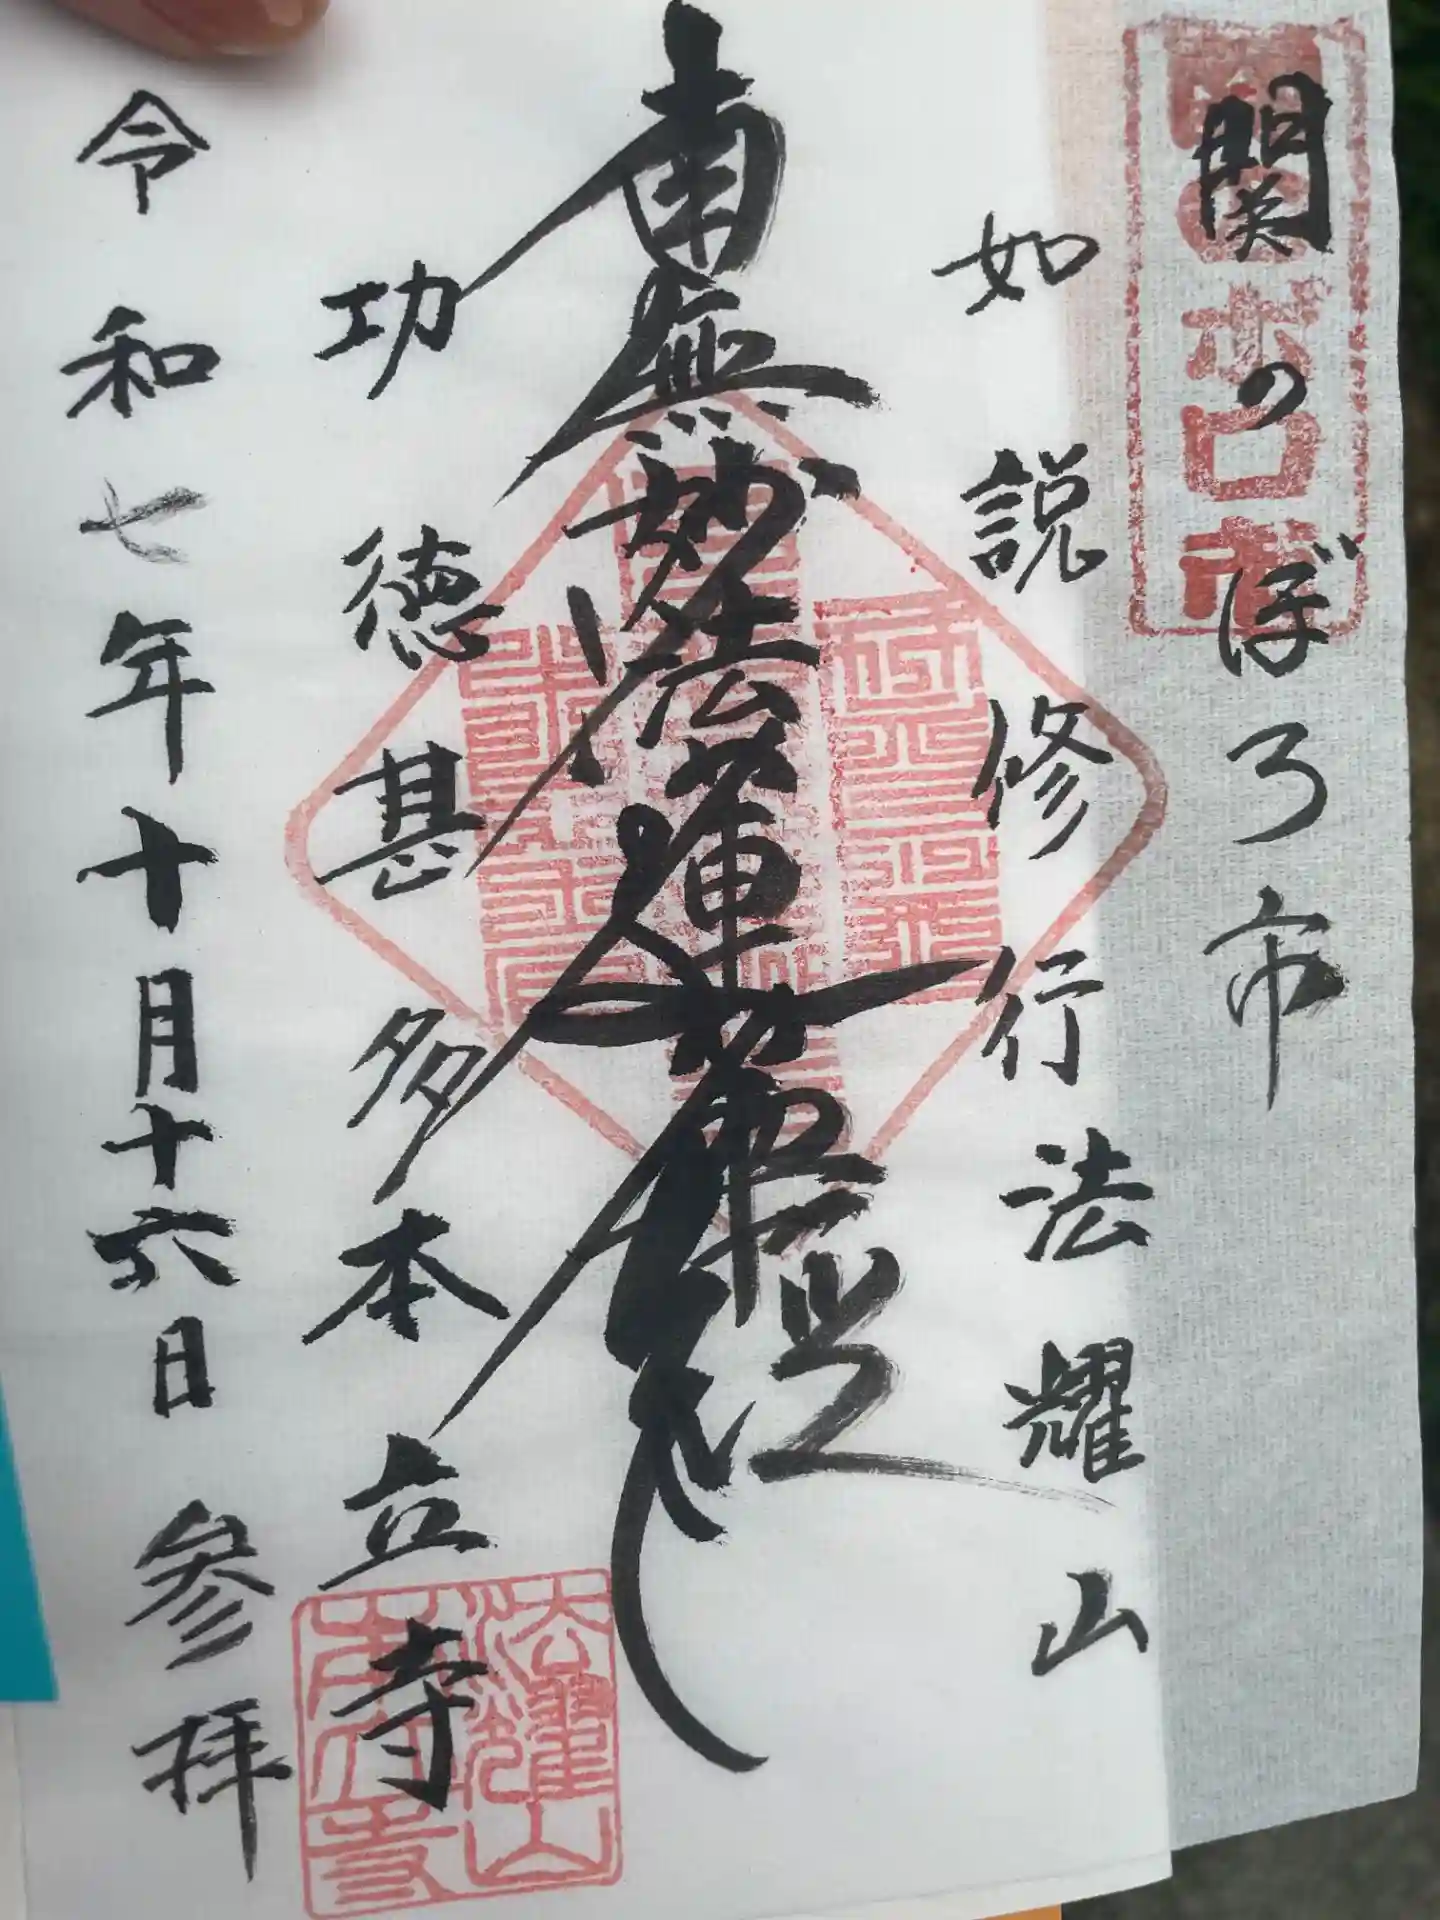 関のぼろ市
如説修行法耀山
南無妙法蓮華経
功徳甚多本立寺
令和七年十月十六日 参拝
法耀山
本立寺